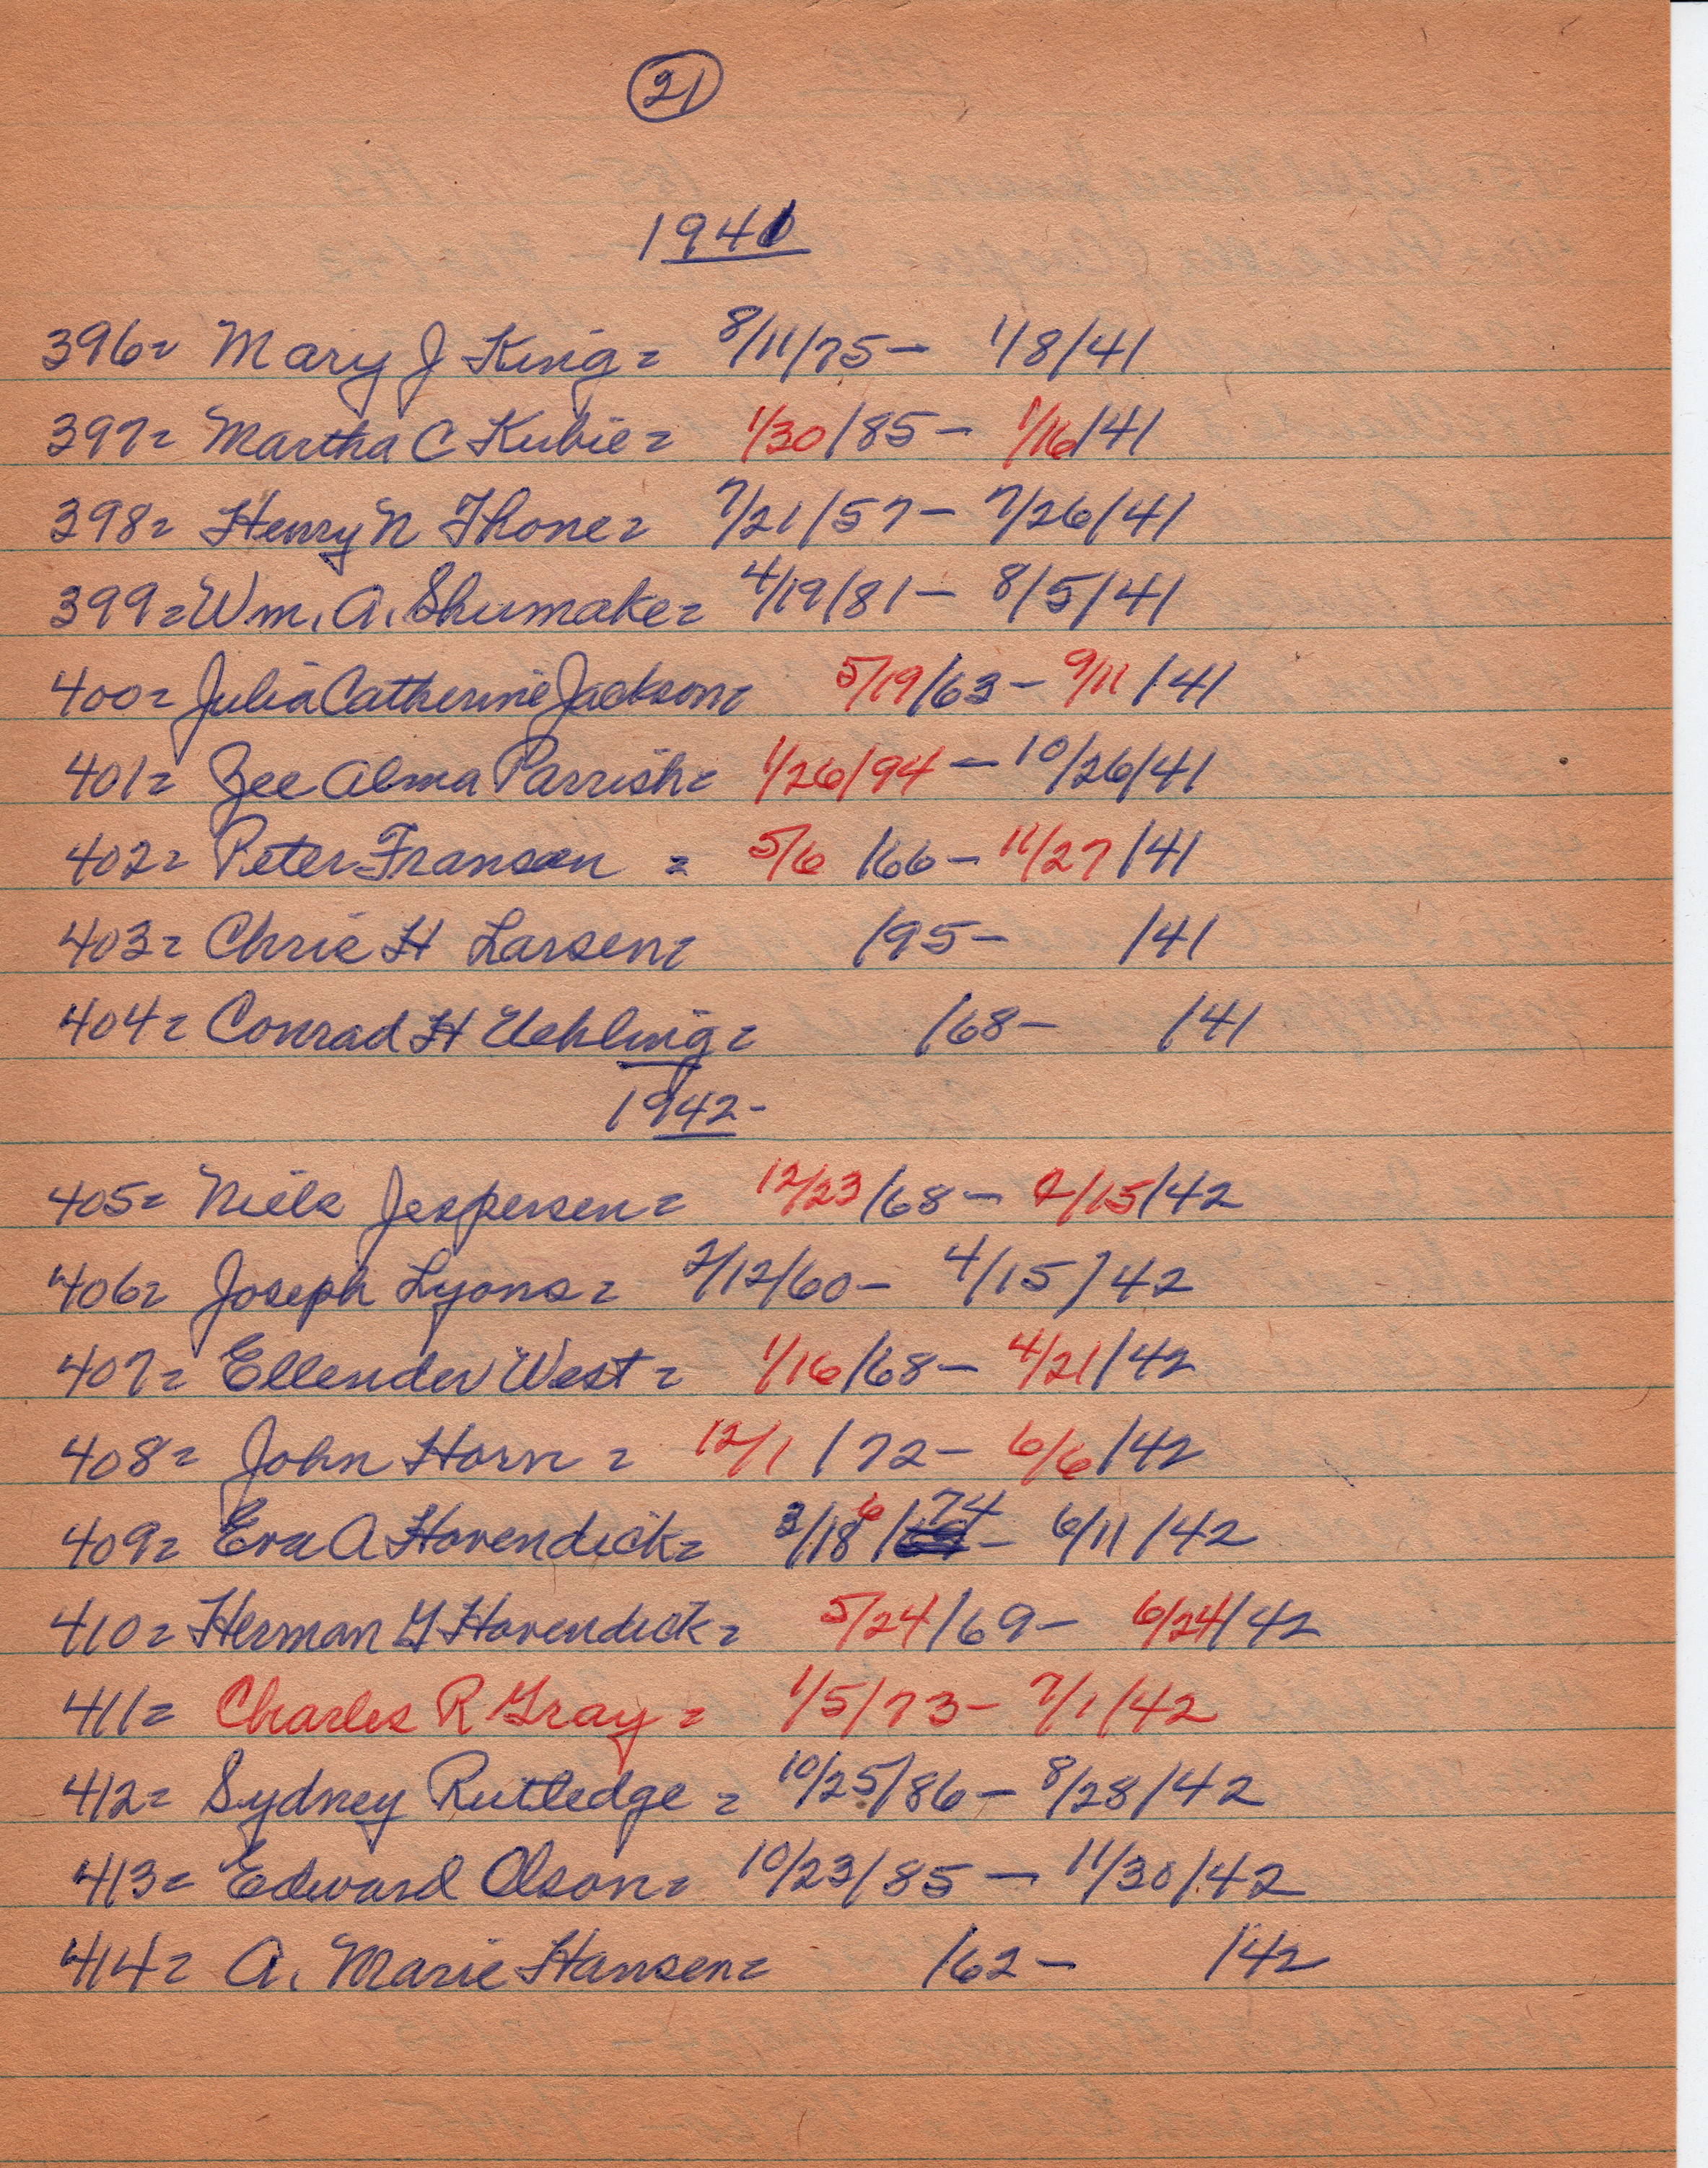 21
1941
396= Mary J King= 8/11/75- 1/8/41
397= Martha C Kubie= 1/30/85- 1/16/41
398= Henry N Thone= 7/21/57- 7/26/41
399= Wm. A. Shumake= 4/19/81- 8/5/41
400= Julia Catherine Jackson= 5/19/63- 9/11/41
401= Zee Alma Parrish= 1/26/94- 10/26/41
402= Peter Franson = 5/6/66- 11/27/41
403= Chris H Larsen= /95- /41
404= Conrad H Uehling= /68- /41
1942-
405= Niels Jespersen= 12/23/68- 2/15/42
406= Joseph Lyons= 2/12/60- 4/15/42
407= Ellender West= 1/16/68- 4/21/42
408= John Horn= 12/1/72- 6/6/42
409= Eva A Hovendick= 3/18/74- 6/11/42
410= Herman G Hovendick= 5/24/69- 6/24/42
411= Charles R Gray= 1/5/73- 7/1/42
412= Sydney Rutledge= 10/25/86- 8/28/42
413= Edward Olson= 10/23/85- 11/30/42
414= A. Marie Hansen= /62- /42